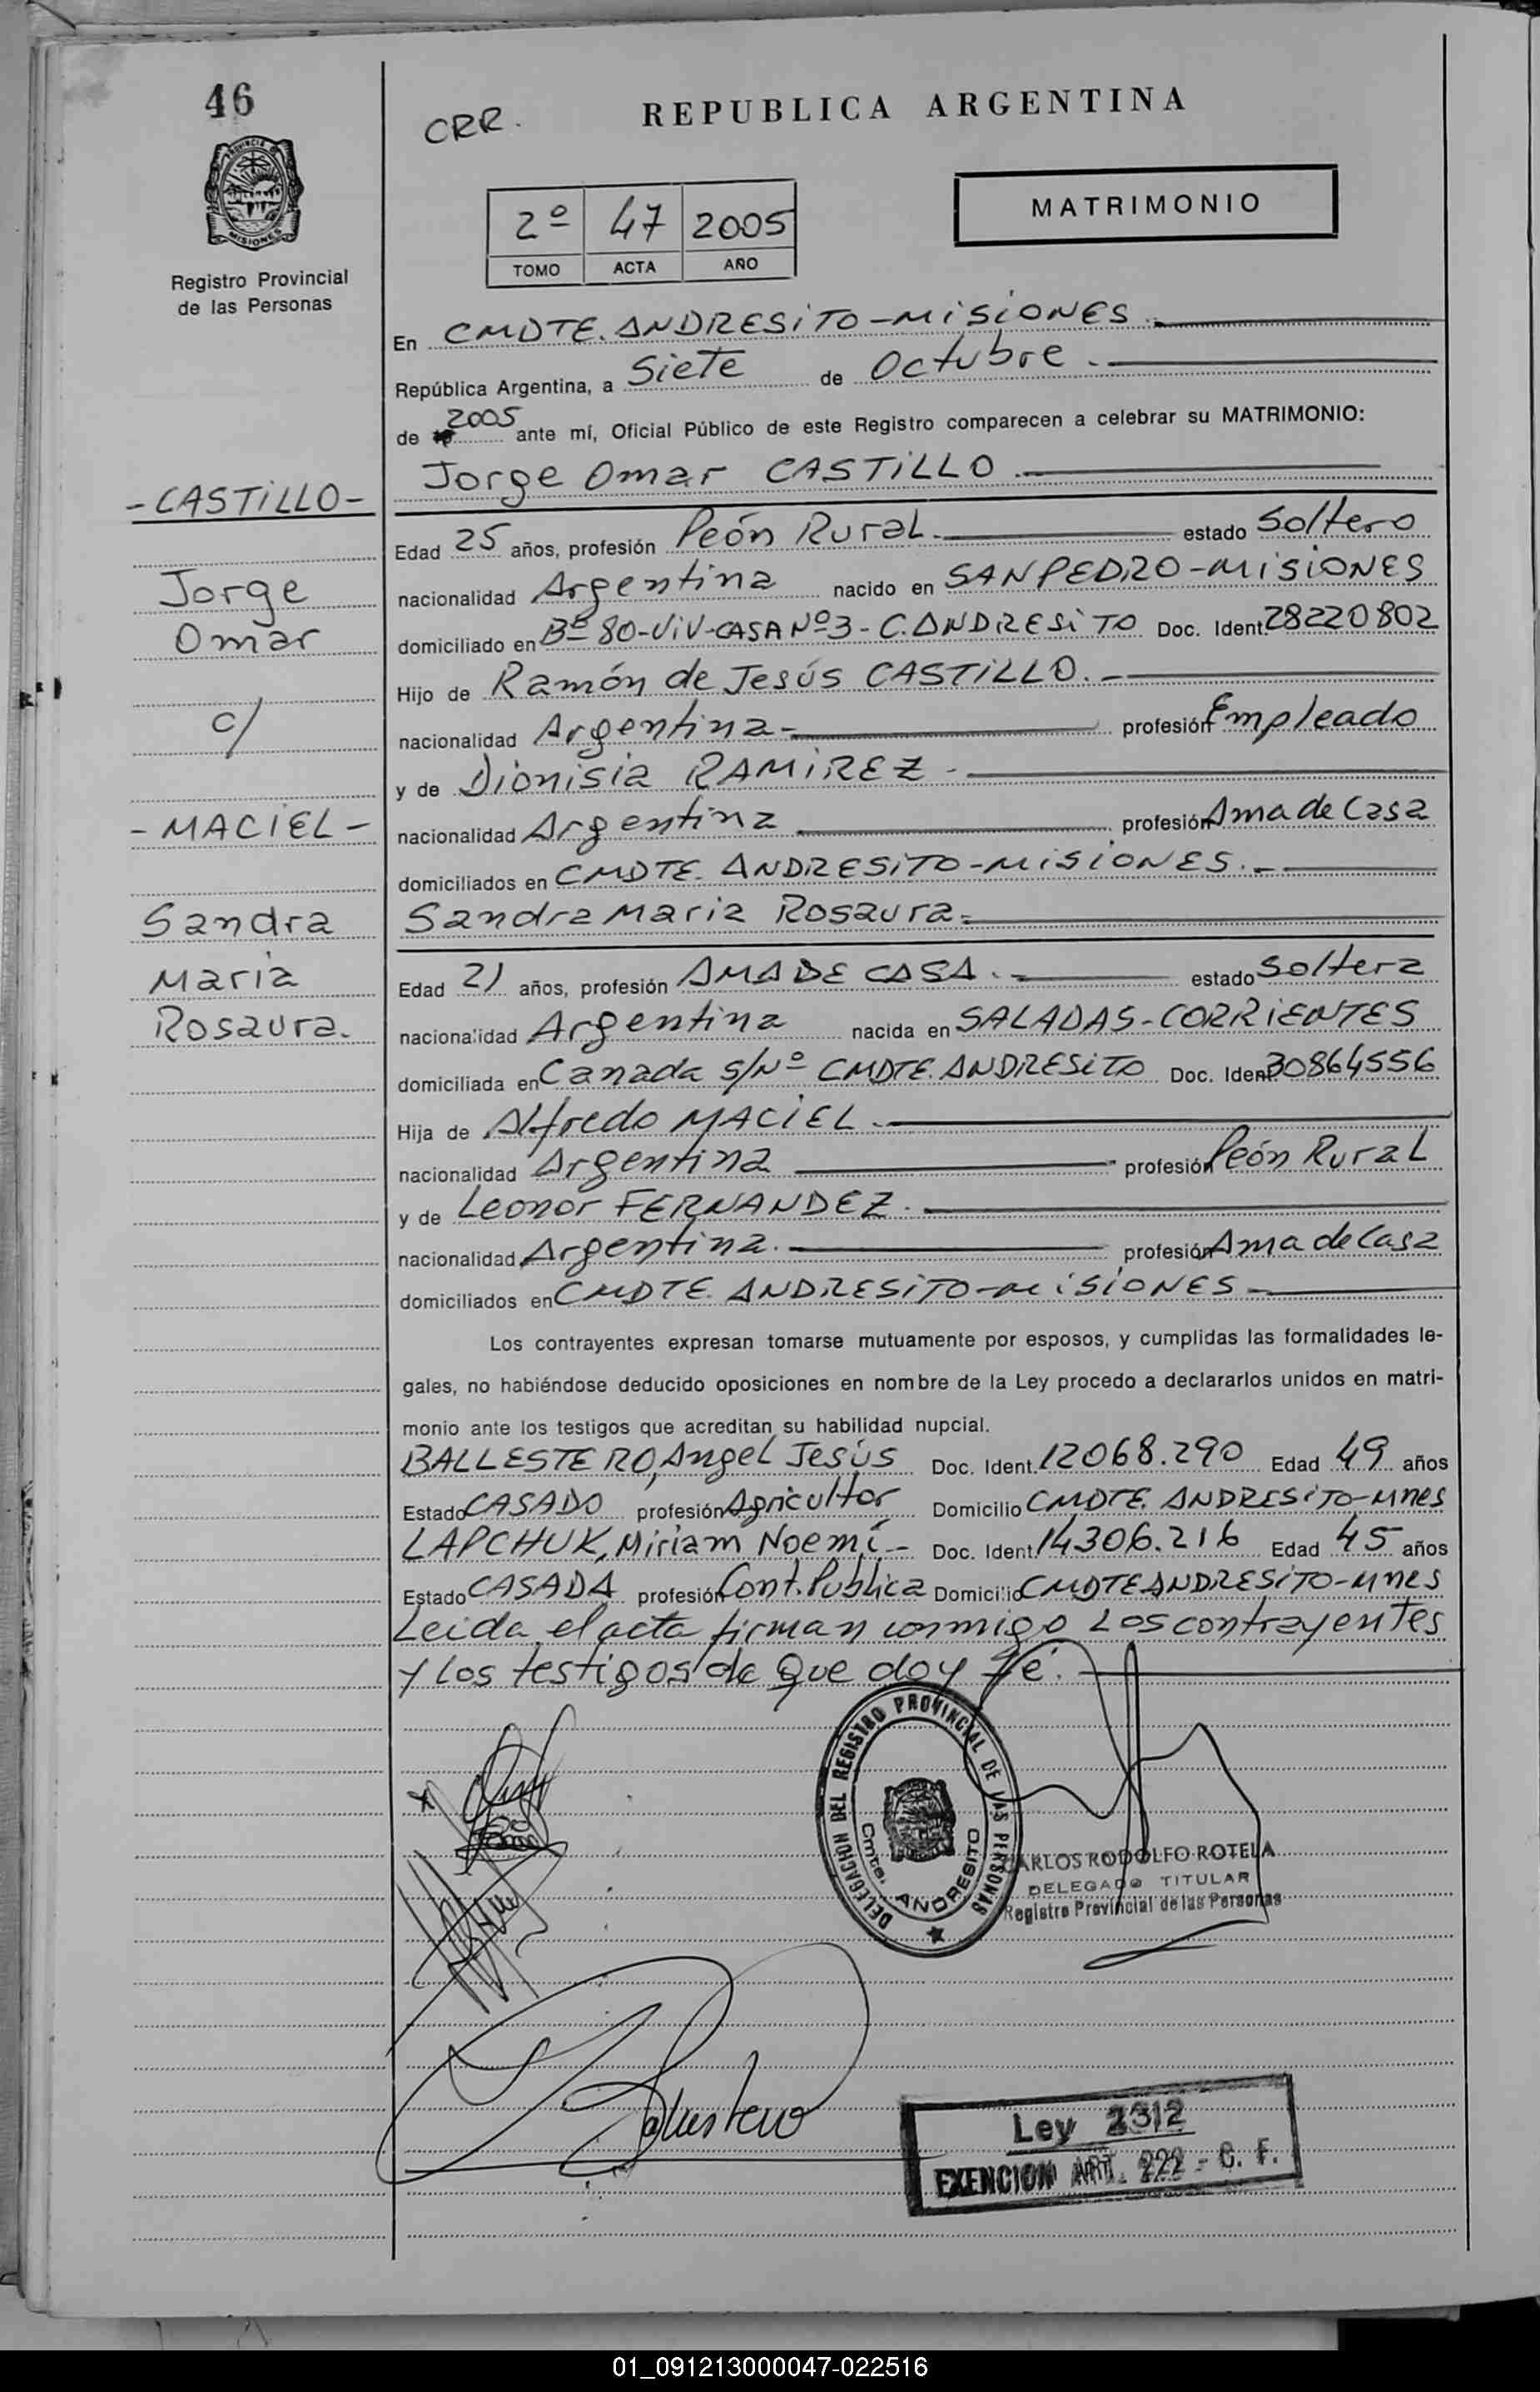 46
CRR.
REPUBLICA ARGENTINA
PROVINCIA DE
MISIONES
Registro Provincial
de las Personas
2º 47 2005
TOMO ACTA AÑO
MATRIMONIO
En CMDTE. ANDRESiTO-MiSiONES.
República Argentina, a SieTe de Octubre.
de 2005 ante mí, Oficial Público de este Registro comparecen a celebrar su MATRIMONIO:
Jorge Omar CASTiLLO.
-CASTiLLO-
Edad 25 años, profesión Peón RuraL. estado Soltero
Jorge
nacionalidad Argentina nacido en SANPEDRO-MiSiONES
Omar
domiciliado en Bº 80-ViV-CASA Nº3-C.ANDRESiTO Doc. Ident. 28220802
Hijo de Ramón de Jesús CASTiLLO.
c/
nacionalidad Argentina- profesión Empleado
y de Dionisia RAMiREZ-
-MACiEL-
nacionalidad Argentina profesión Ama de Casa
domiciliados en CMDTE. ANDRESiTO-MiSiONES.
Sandra
Sandra Maria Rosaura.
Maria
Edad 21 años, profesión AMA DE CASA. estado Soltera
Rosaura.
nacionalidad Argentina nacida en SALADAS-CORRiENTES
domiciliada en Canada S/Nº CMDTE.ANDRESiTO Doc. Ident. 30864556
Hija de Alfredo MACiEL.
nacionalidad Argentina profesión Peón RuraL
y de Leonor FERNANDEZ.
nacionalidad Argentina. profesión Ama de Casa
domiciliados en CMDTE. ANDRESiTO-MiSiONES
Los contrayentes expresan tomarse mutuamente por esposos, y cumplidas las formalidades le-
gales, no habiéndose deducido oposiciones en nombre de la Ley procedo a declararlos unidos en matri-
monio ante los testigos que acreditan su habilidad nupcial.
BALLESTERO, Angel Jesús Doc. Ident. 12068.290 Edad 49 años
Estado CASADO profesión Agricultor Domicilio CMDTE. ANDRESiTO-Mnes
LAPCHUK, Miriam Noemí- Doc. Ident. 14306.216 Edad 45 años
Estado CASADA profesión Cont.Publica Domicilio CMDTE ANDRESiTO-Mnes
Leida el acta firman conmigo Los contrayentes
y Los testigos de que doy fé.
DELEGACION DEL REGISTRO PROVINCIAL DE LAS PERSONAS
Cmte. ANDRESITO
CARLOS RODOLFO ROTELA
DELEGADO TITULAR
Registro Provincial de las Personas
Ley 2312
EXENCION ART. 222 - C. F.
01_091213000047-022516